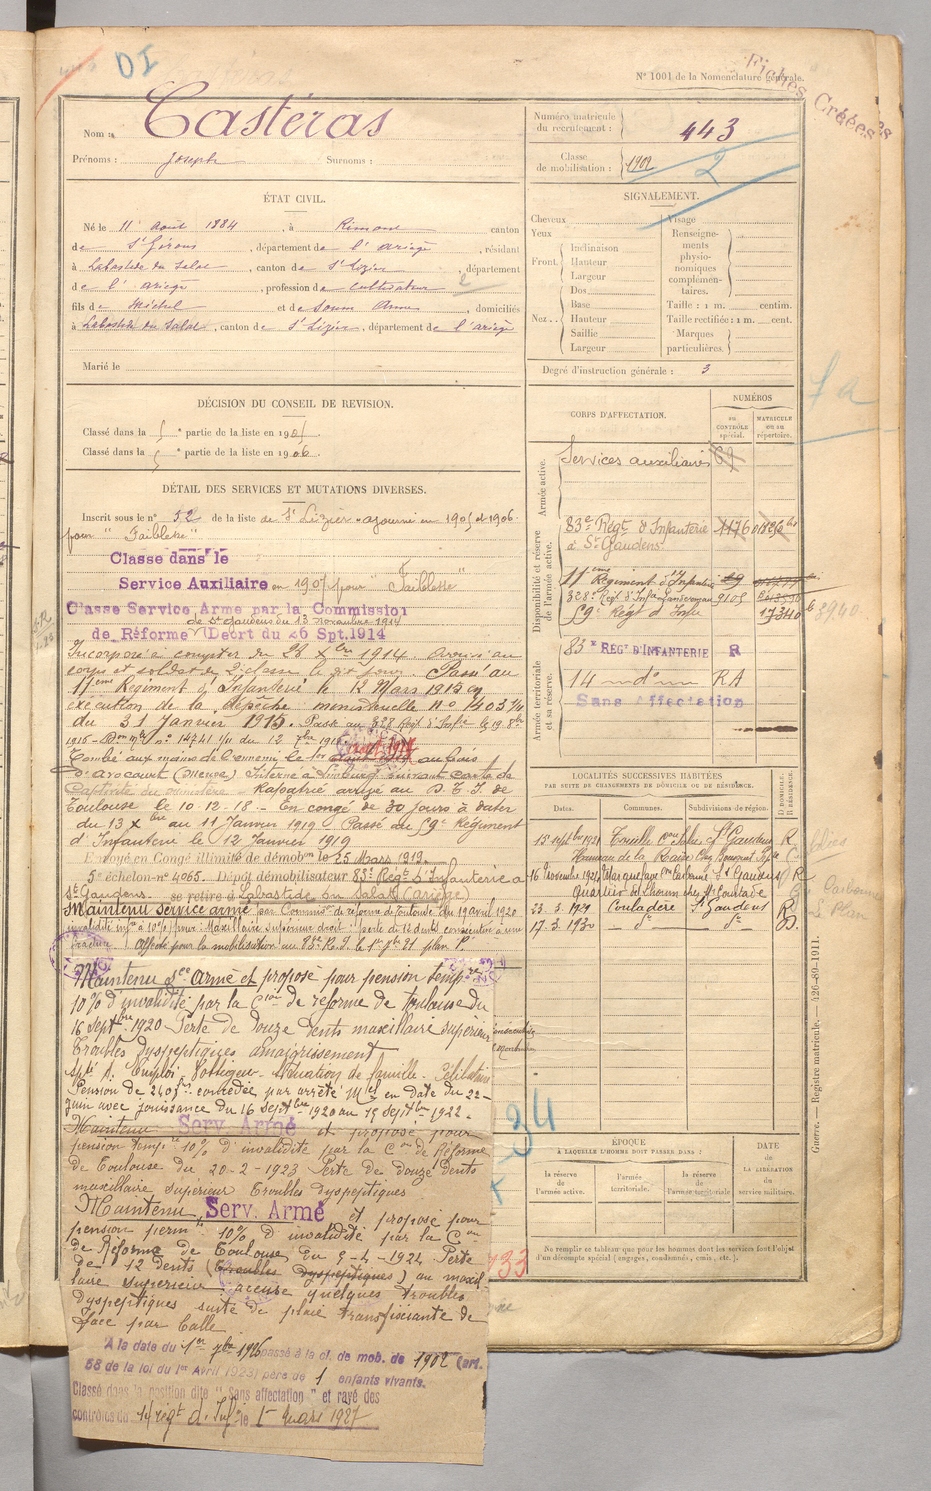 DI
N° 1001 de la Nomenclature générale.
Fiches Créées
Nom : Castéras
Prénoms : Joseph Surnoms :
Numéro matricule du recrutement : 443
Classe de mobilisation : 1902
2
ÉTAT CIVIL.
Né le 11 août 1884, à Rimont canton
de St Girons, département de l'Ariège, résidant
à Labastide du Salat, canton de St Lizier, département
de l'Ariège, profession de cultivateur
fils de Michel et de Soum Anna, domiciliés
à Labastide du Salat, canton de St Lizier, département de l'Ariège
Marié le
SIGNALEMENT.
Cheveux
Yeux
Front. Inclinaison
Hauteur
Largeur
Nez. Dos
Base
Hauteur
Saillie
Largeur
Visage
Renseignements physionomiques complémentaires.
Taille : 1 m. centim.
Taille rectifiée : 1 m. cent.
Marques particulières.
Degré d'instruction générale : 3
1a
DÉCISION DU CONSEIL DE REVISION.
Classé dans la 5e partie de la liste en 1905.
Classé dans la 5e partie de la liste en 1906.
DÉTAIL DES SERVICES ET MUTATIONS DIVERSES.
Inscrit sous le n° 52 de la liste de St Lizier - ajourné en 1905 et 1906
pour "Faiblesse"
Classé dans le
Service Auxiliaire en 1907 pour "Faiblesse"
Classe Service Armé par la Commission
de St Gaudens du 13 novembre 1914
de Réforme (Décrt du 26 Spt. 1914
Incorporé à compter du 28 Xbre 1914. Arrivé au
corps et soldat de 2e classe le dit jour. Passé au
11ème Régiment d'Infanterie le 12 Mars 1915 en
exécution de la dépêche ministérielle n° 1403 1/11
du 31 Janvier 1915. Passé au 328 Régt d'Infie le 19 8bre
1915 - Don mle n° 14741 1/11 du 12 7bre 1915
Tombé aux mains de l'ennemi le 1er août 1917 au bois
d'Avocourt (Meuse) Interné à Limburg suivant carte de
Captivité du ministère - Rapatrié arrivé au D. T. I. de
Toulouse le 10-12-18 - En congé de 30 jours à dater
du 13 Xbre au 11 Janvier 1919 - Passé au 59e Régiment
d'Infanterie le 12 Janvier 1919
Envoyé en Congé illimité de démobon le 25 Mars 1919.
5e échelon - n° 4065. Dépôt démobilisateur 83e Régt d'Infanterie à
St Gaudens. se retire à Labastide du Salat (Ariège)
Maintenu service armé par Commisson de réforme de Toulouse du 19 avril 1920
invalidité infre à 10% pour : Maxillaire supérieur droit : perte de 12 dents consécutive à une
fracture. Affecté pour la mobilisation au 83e R.I. le 1er Jer 21 plan P.
Maintenu sce armé et proposé pour pension tempre
10% d'invalidité par la Cion de réforme de Toulouse du
16 Septbre 1920 - Perte de douze dents maxillaire supérieur
Troubles dyspeptiques amaigrissement
Spté d'Emploi Voltigeur - Situation de famille - Célibataire
Pension de 240 frs concédée par arrêté Mel en date du 22
Juin avec jouissance du 16 Septbre 1920 au 15 Septbre 1922.
Maintenu Serv. Armé et proposé pour
pension tempre 10% d'invalidité par la Con de Réforme
de Toulouse du 20-2-1923 Perte de douze dents
maxillaire supérieur Troubles dyspeptiques
Maintenu Serv. Armé et proposé pour
pension permte 10% d'invalidité par la Con
de Réforme de Toulouse du 9-4-1924 Perte
de 12 dents (Troubles dyspeptiques) au maxil
laire supérieur accuse quelques troubles
dyspeptiques suite de plaie transfixiante de
face par balle
A la date du 1er 7bre 1926 passé à la cl. de mob. de 1902 (art.
58 de la loi du 1er Avril 1923) père de 1 enfants vivants.
Classé dans la position dite "Sans affectation" et rayé des
contrôles du 14 régt d'Infie le 1er mars 1927
CORPS D'AFFECTATION.
NUMÉROS
AU CONTRÔLE spécial.
MATRICULE ou au répertoire.
Armée active.
Services auxiliaires 69
Disponibilité et réserve de l'armée active.
83e Régt d'Infanterie à St Gaudens. 1176
11ème Régiment d'Infanterie
328e Régt d'Infie 9105
59e Régt d'Infie 17340
Armée territoriale et sa réserve.
83e RÉGt D'INFANTERIE R
14 — do — RA
Sans Affectation
LOCALITÉS SUCCESSIVES HABITÉES
PAR SUITE DE CHANGEMENTS DE DOMICILE OU DE RÉSIDENCE.
Dates. Communes. Subdivisions de région. D. DOMICILE. R. RÉSIDENCE.
St Gaudens R
16 Novembre 1926 St Gaudens R
23-3-1929 Couladère St Gaudens R
17-3-1930 — do — do — D.
34
ÉPOQUE
À LAQUELLE L'HOMME DOIT PASSER DANS :
la réserve de l'armée active.
l'armée territoriale.
la réserve de l'armée territoriale.
DATE DE LA LIBÉRATION du service militaire.
Ne remplir ce tableau que pour les hommes dont les services font l'objet d'un décompte spécial (engagés, condamnés, omis, etc.).
933
Guerre. — Registre matricule. — 426-89-1911.